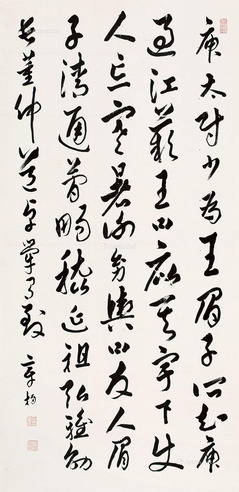 庾太尉少為王眉子所知庾
過江歎王曰庇其宇下使
人忘寒暑謝幼輿曰友人眉
子清通簡暢嵇延祖弘雅劭
長董仲道卓犖有致